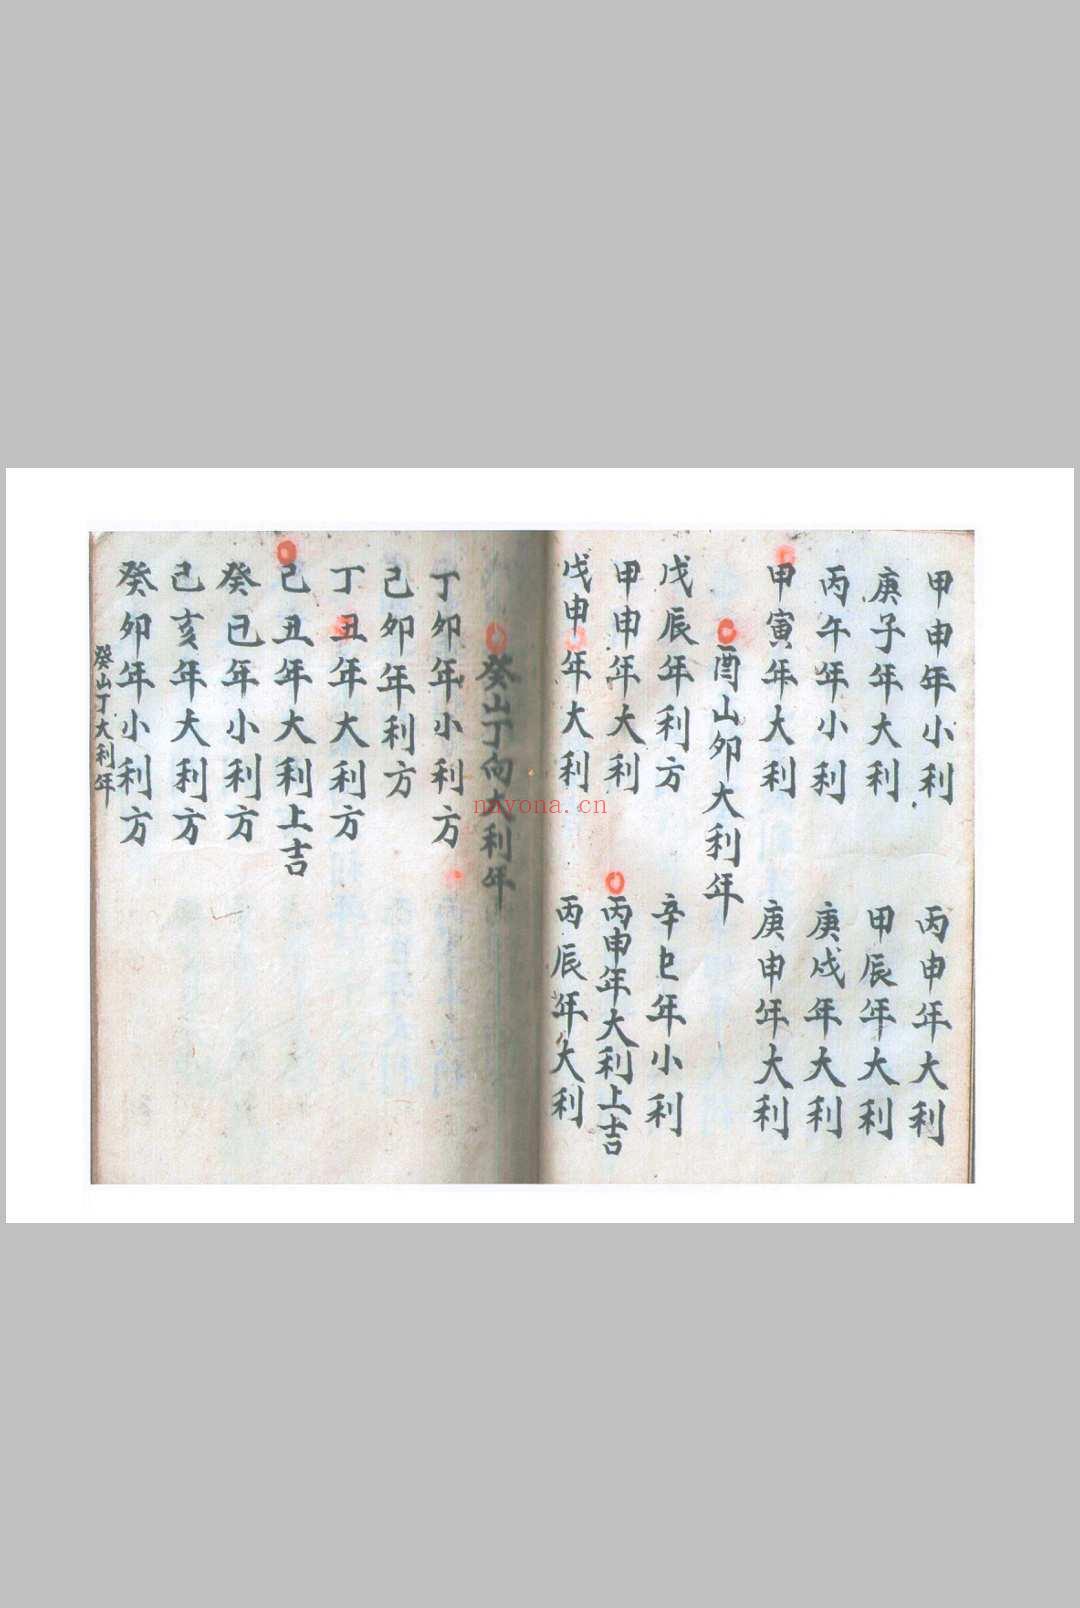 甲申年小利
丙申年大利
庚子年大利
甲辰年大利
丙午年小利
庚戌年大利
甲寅年大利
庚申年大利
酉山卯大利年
戊辰年利方
辛巳年小利
甲申年大利
丙申年大利上吉
戊申年大利
丙辰年大利
癸山丁向大利年
丁卯年小利方
己卯年利方
丁丑年大利方
己丑年大利上吉
癸巳年小利方
己亥年大利方
癸卯年小利方
癸山丁大利年
nayona.cn